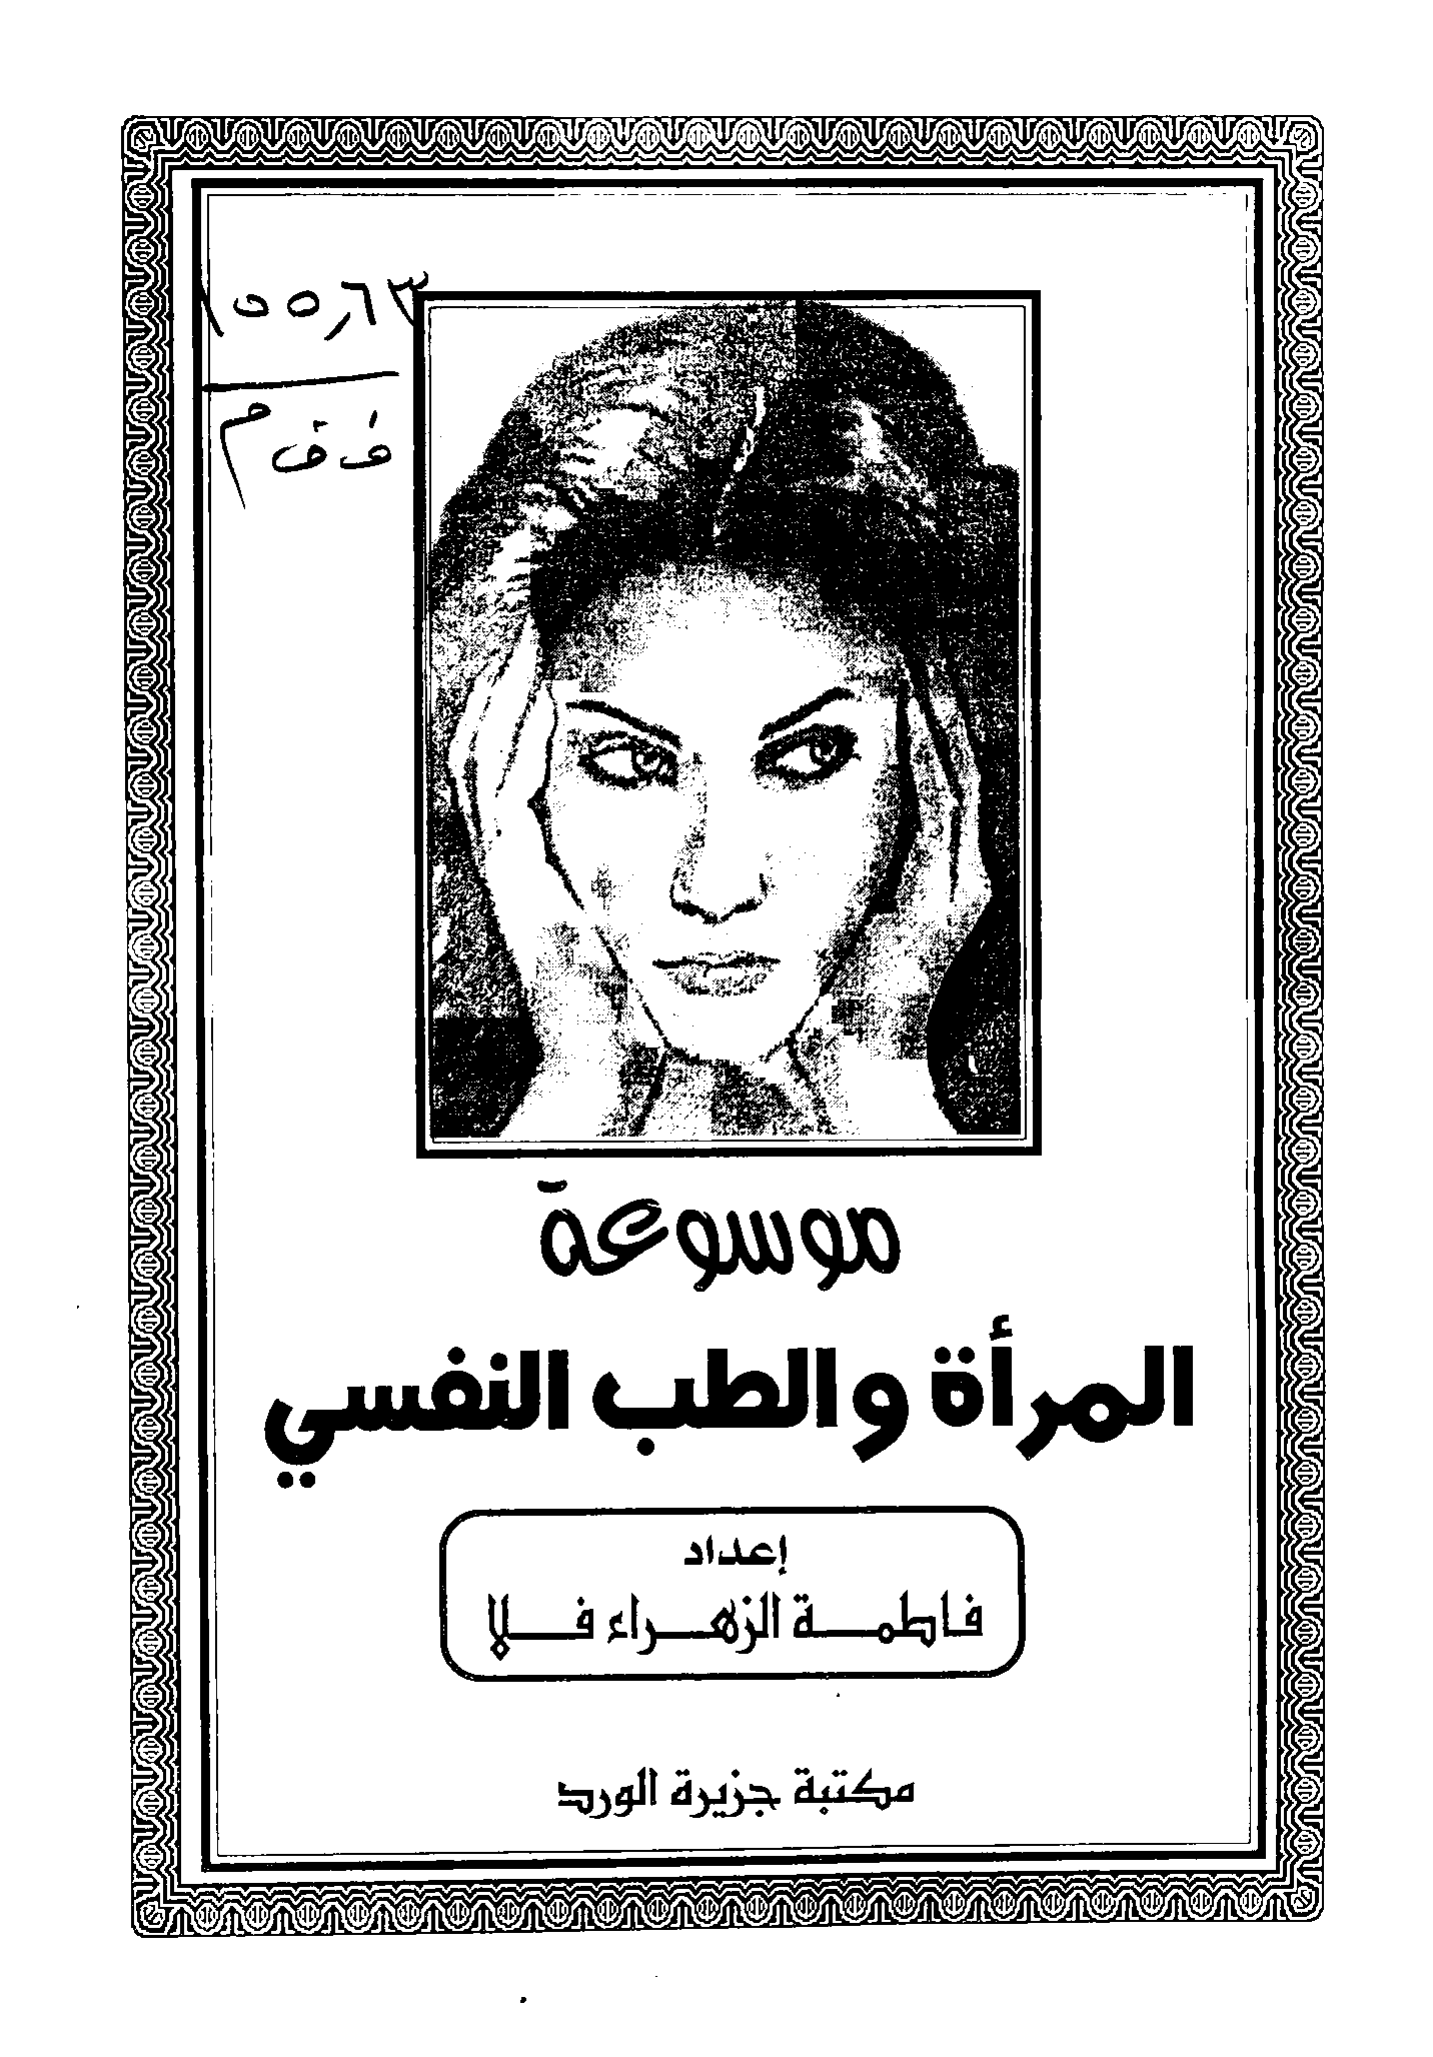 ١٥٥,٦٣
ف ق م
موسوعة
المرأة والطب النفسي
إعداد
فاطمة الزهراء فلا
مكتبة جزيرة الورد